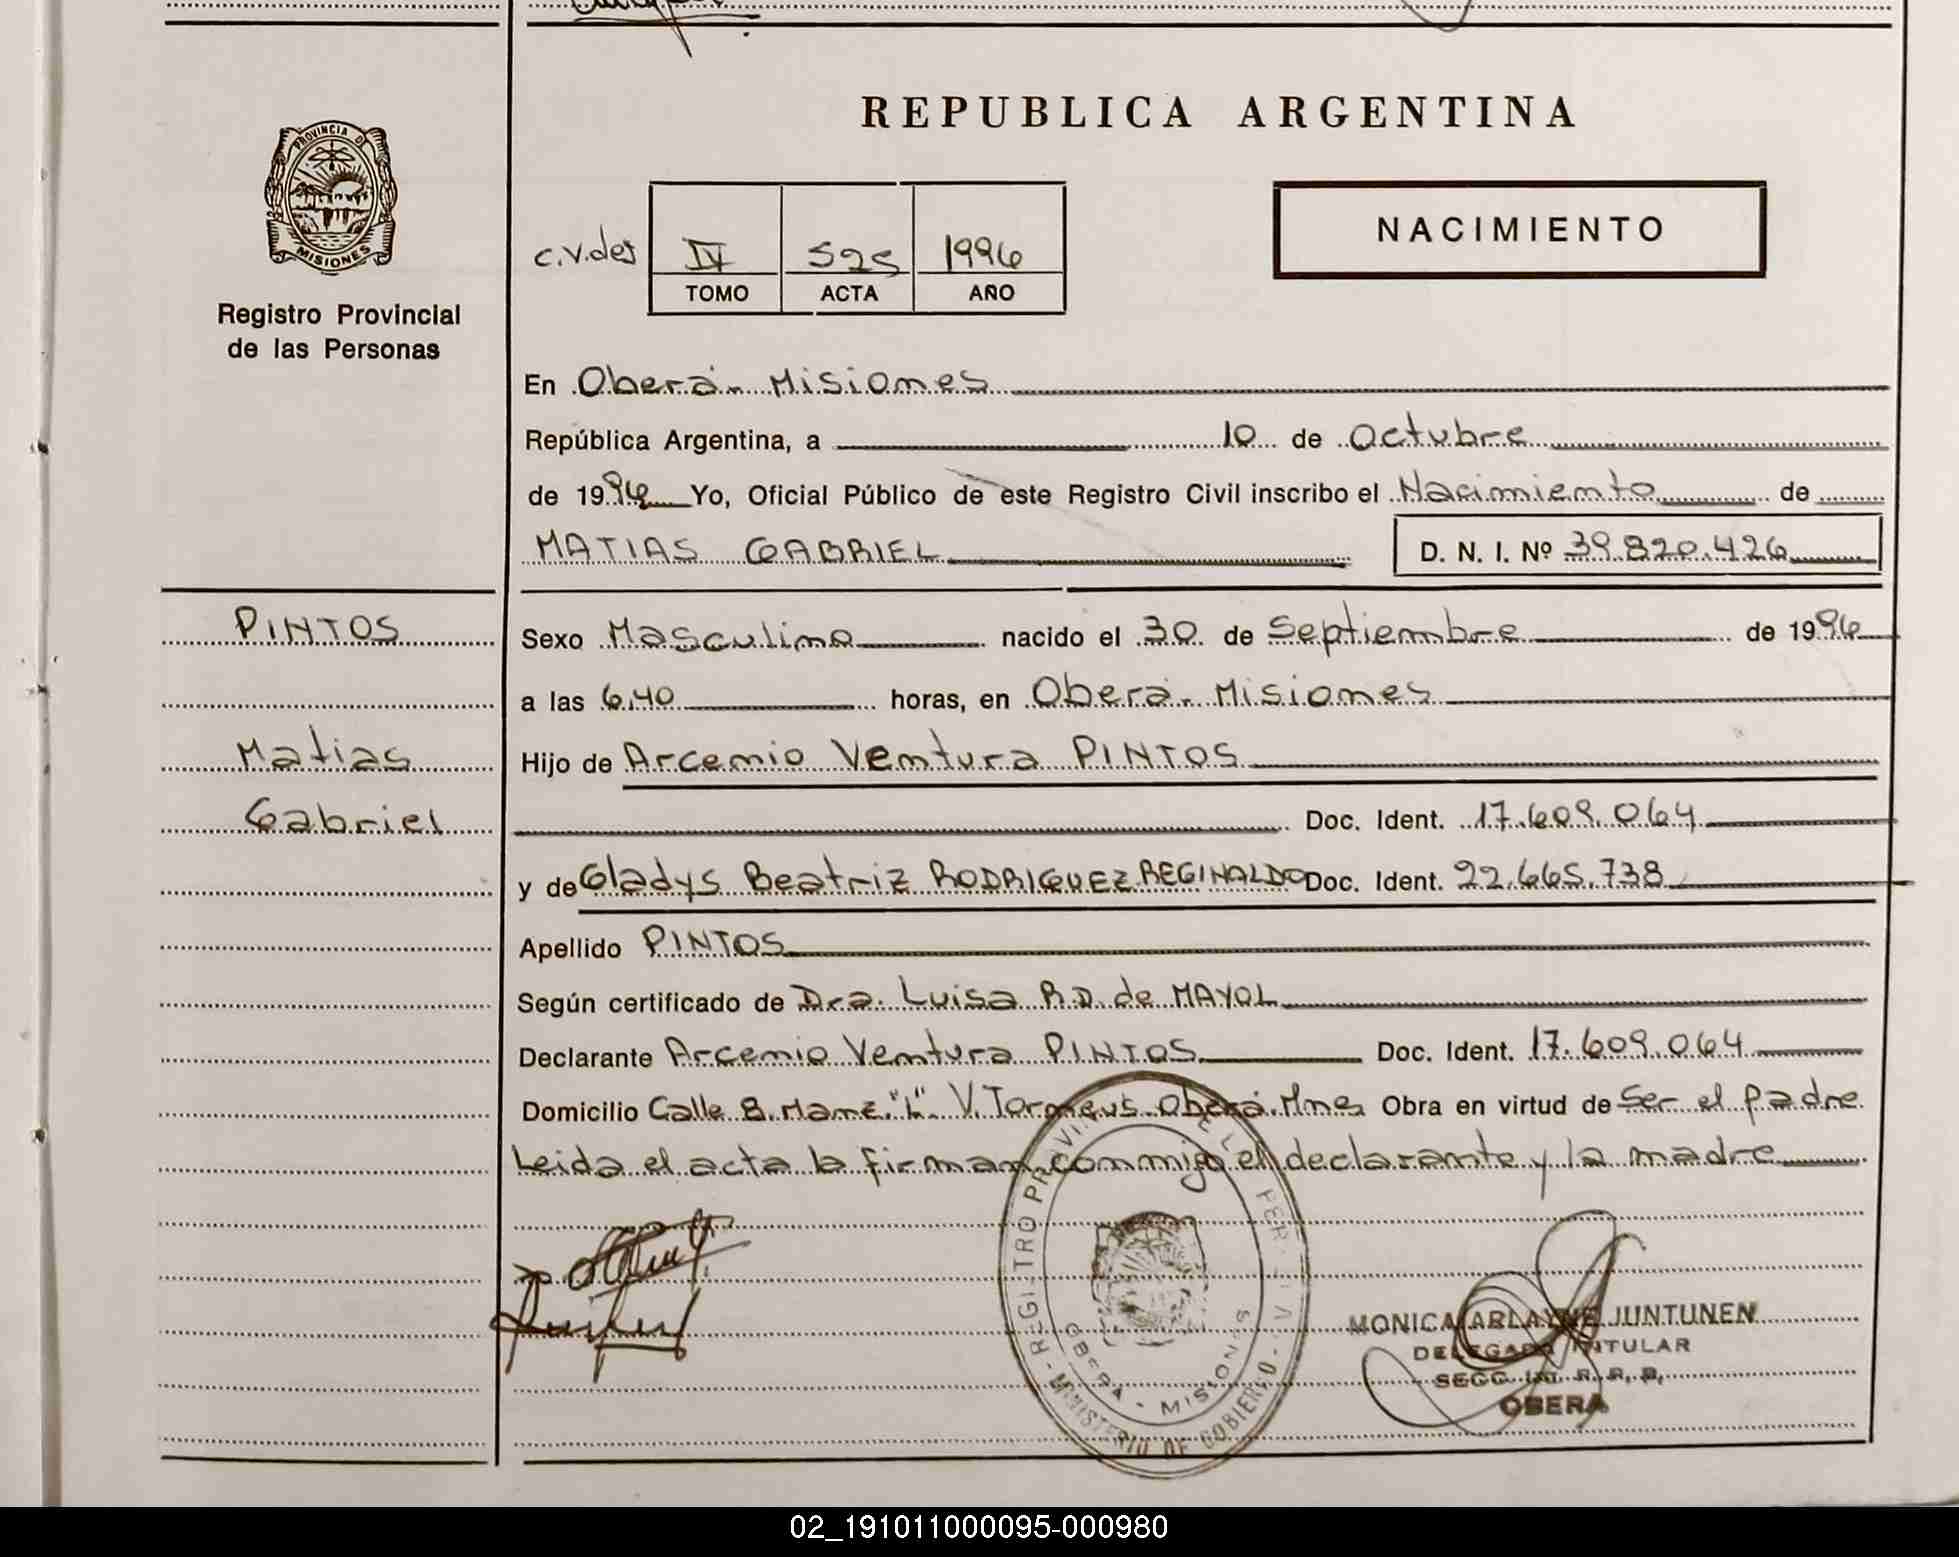 REPUBLICA ARGENTINA
PROVINCIA D
MISIONES
Registro Provincial
de las Personas
NACIMIENTO
c.v.des IV 525 1996
TOMO ACTA AÑO
En Oberá. Misiones
República Argentina, a 10 de Octubre
de 1996 Yo, Oficial Público de este Registro Civil inscribo el Nacimiento de
MATIAS GABRIEL D. N. I. Nº 39.820.426
PINTOS
Matias
Gabriel
Sexo Masculino nacido el 30 de Septiembre de 1996
a las 6,40 horas, en Oberá. Misiones
Hijo de Arcemio Ventura PINTOS
Doc. Ident. 17.609.064
y de Gladys Beatriz RODRIGUEZ REGINALDO Doc. Ident. 22.665.738
Apellido PINTOS
Según certificado de Dra. Luisa R.D. de MAYOL
Declarante Arcemio Ventura PINTOS Doc. Ident. 17.609.064
Domicilio Calle 8. Manz."L". V. Oberá. Mnes Obra en virtud de Ser el padre
Leida el acta la firman conmigo el declarante y la madre
REGISTRO PROVINCIAL DE LAS PER
OBERA - MISIONES
MINISTERIO DE GOBIERNO
MONICA ARLAYNE JUNTUNEN
DELEGADA TITULAR
SECC. R. P.
OBERA
02_191011000095-000980